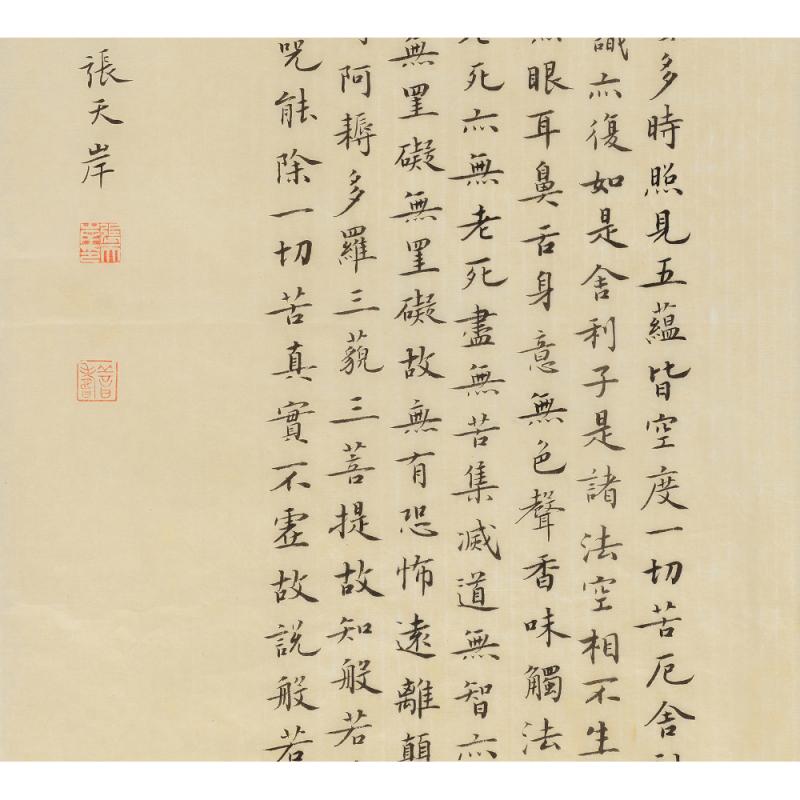 多時照見五蘊皆空度一切苦厄舍
識亦復如是舍利子是諸法空相不生
無眼耳鼻舌身意無色聲香味觸法
老死亦無老死盡無苦集滅道無智亦
無罣礙無罣礙故無有恐怖遠離顛
阿耨多羅三藐三菩提故知般若
咒能除一切苦真實不虛故說般若
張天岸